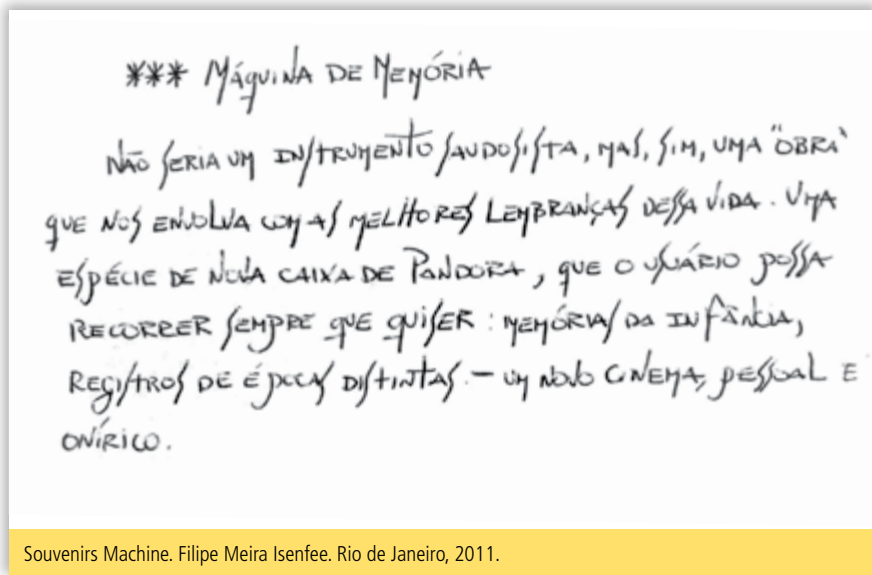 *** MÁQUINA DE MEMÓRIA
NÃO SERIA UM INSTRUMENTO SAUDOSISTA, MAS, SIM, UMA "OBRA"
QUE NOS ENVOLVA COM AS MELHORES LEMBRANÇAS DESSA VIDA. UMA
ESPÉCIE DE NOVA CAIXA DE PANDORA, QUE O USUÁRIO POSSA
RECORRER SEMPRE QUE QUISER: MEMÓRIAS DA INFÂNCIA,
REGISTROS DE ÉPOCAS DISTINTAS. – UM NOVO CINEMA, PESSOAL E
ONÍRICO.
Souvenirs Machine. Filipe Meira Isenfee. Rio de Janeiro, 2011.